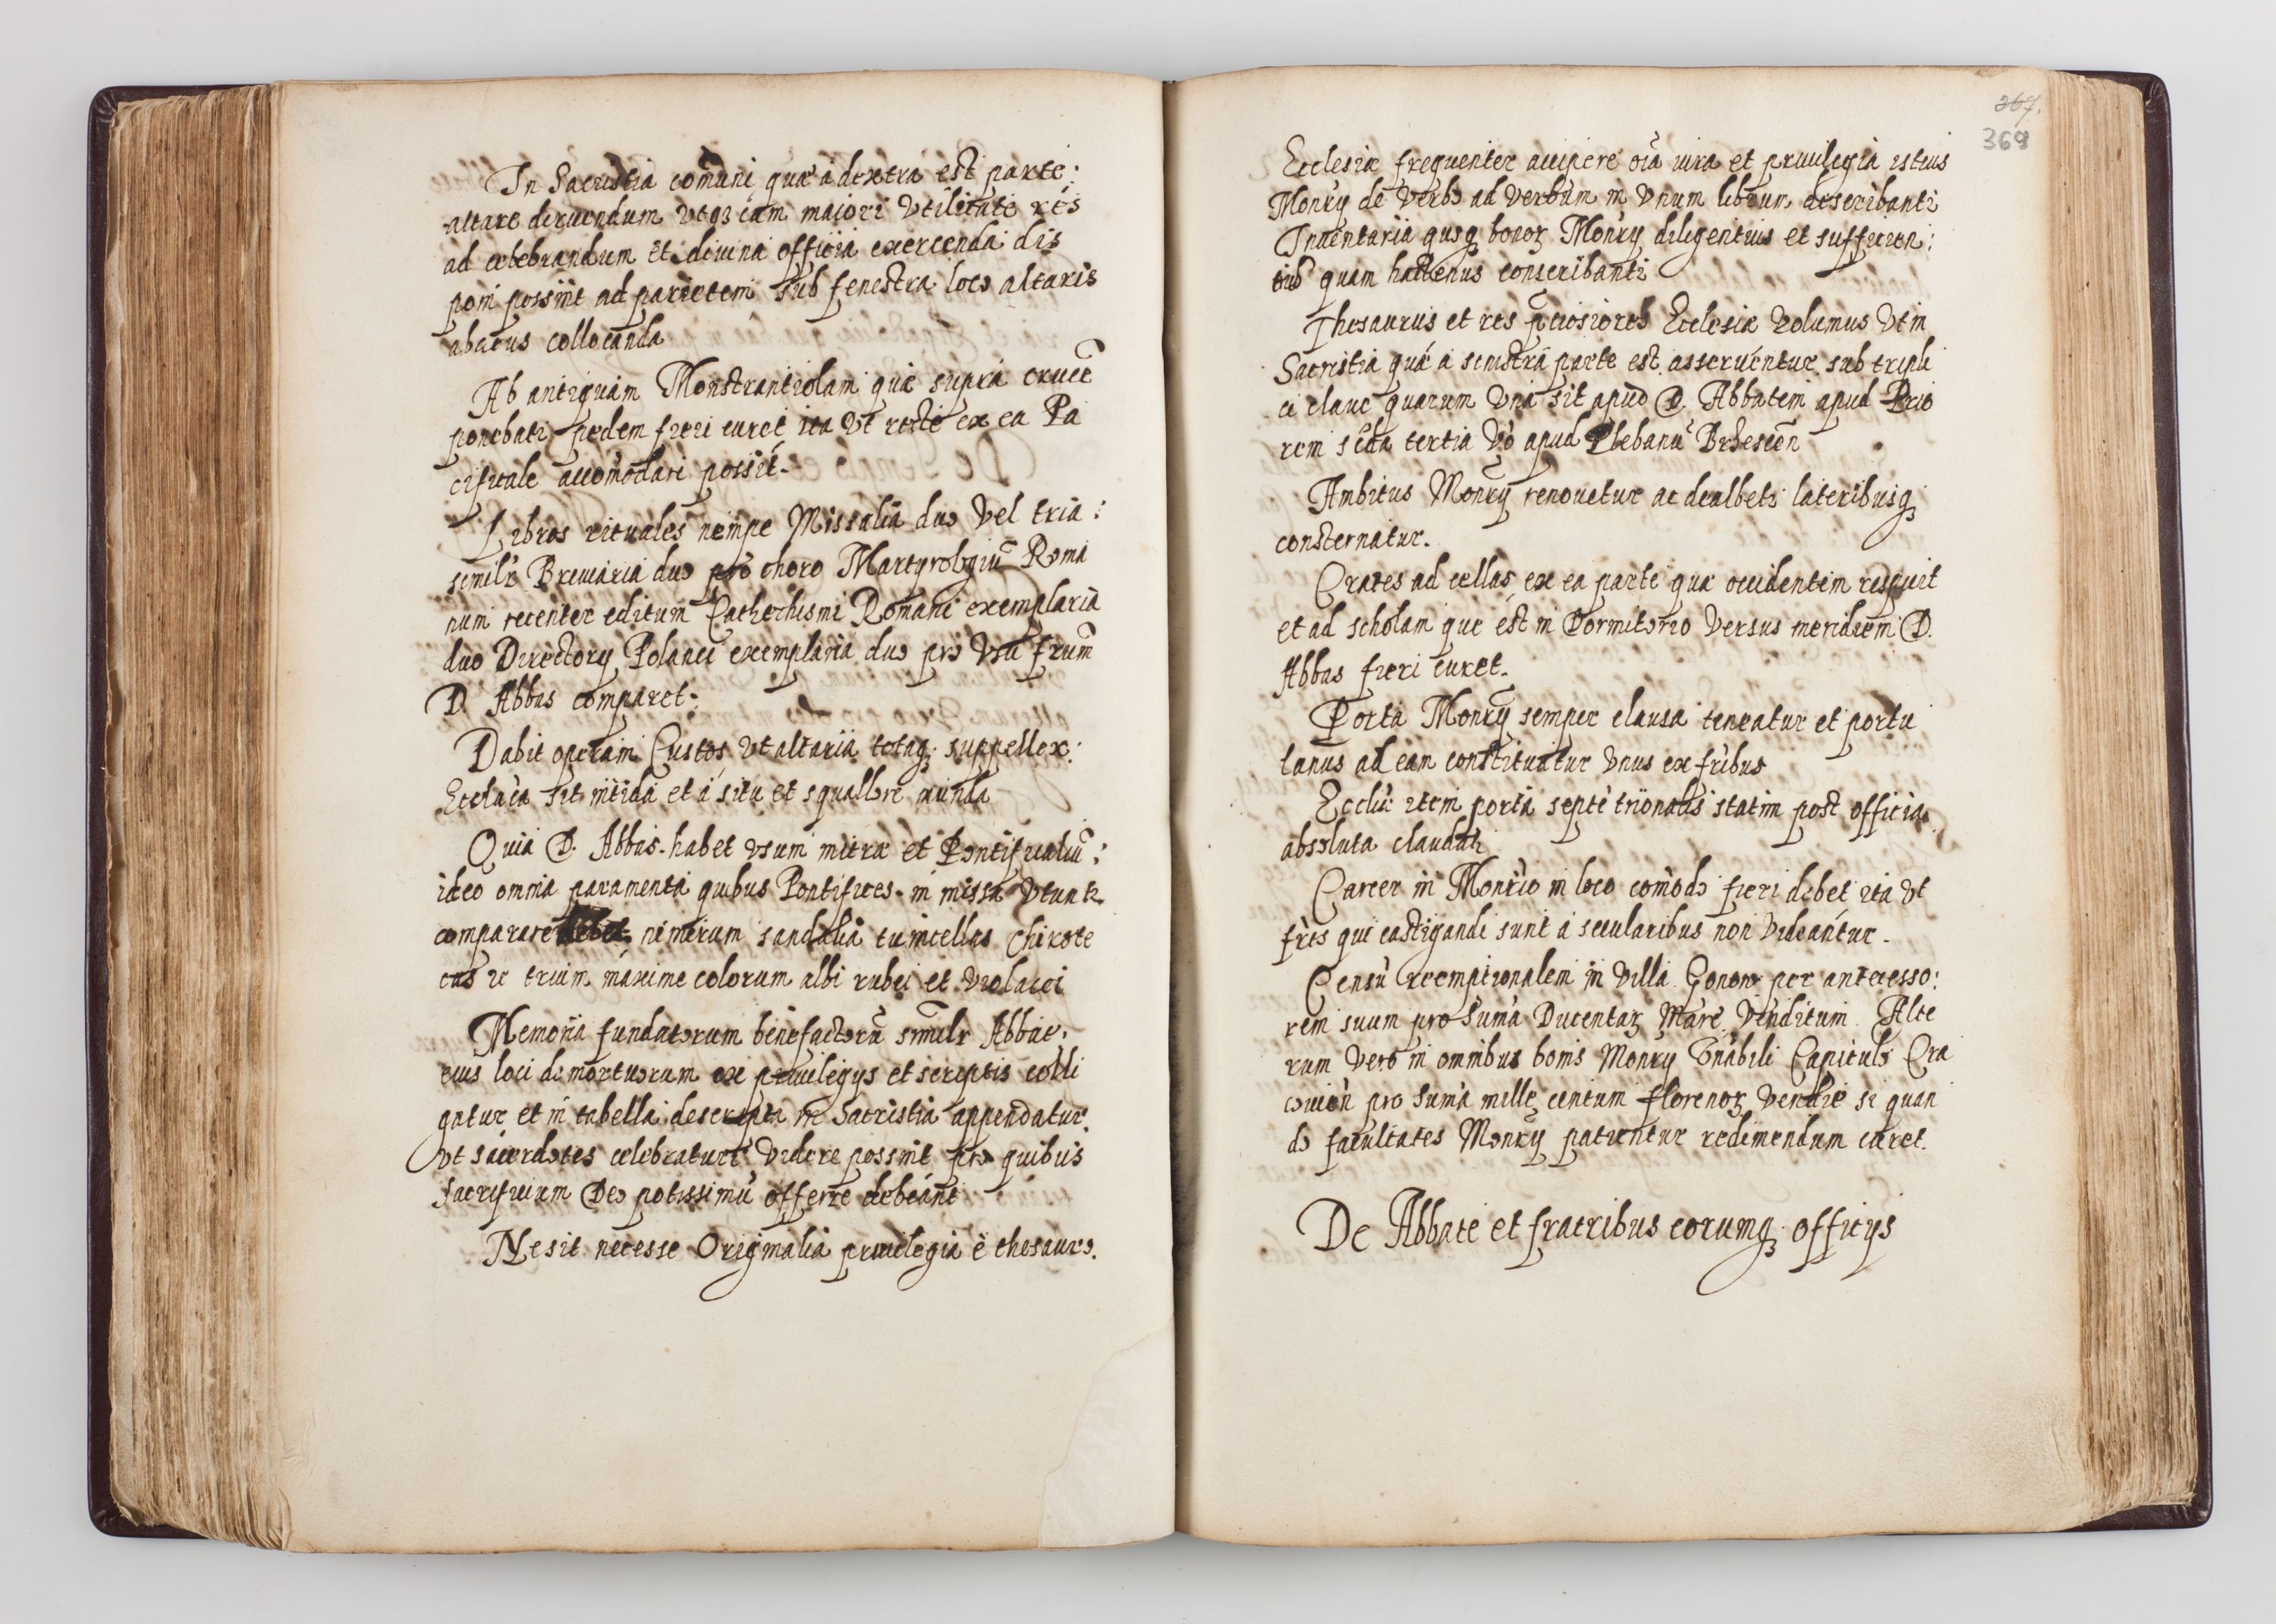 In Sacristia com̄uni quæ a dextra est parte:
altare diruendum utq3 eam maiori Vtilitate res
ad celebrandum et divina officia exercenda dis
poni possint ad parietem sub fenestra loco altaris
abacus collocanda
Ab antiquam Monstrantiolam quæ supra cruce
ponebatr pedem fieri curet ita Vt recte ex ea Pa
cificale accomodari possit.
Libros rituales nempe Missalia duo Vel tria:
similr Breuiaria duo pro choro Martyrologiū Roma
num recenter editum Cathechismi Romani exemplaria
duo Directory Polanci exemplaria duo pro Vsu frum̄
D. Abbas comparet:
Dabit operam Custos Vt altaria totaq3 suppellex:
Eccla͞ca sit nitida et a situ et squallore munda
Quia D. Abbas habet usum mitræ et Pontificaliū:
ideo omnia paramenta quibus Pontifices in missa Vtuntr
comparare nimirum sandalia tunicellas Chirote
cas et trium maxime colorum albi rubei et Violacei
Memoria fundatorum benefactorū similr Abbat:
eius loci demortuorum ex priuilegys et scriptis colli
gatur et in tabella descripta in Sacristia appendatur.
Vt sacerdotes celebraturi Videre possint pro quibus
sacrificium Deo potissimū offerre debeant
Ne sit necesse Originalia priuilegia è thesauro.
267.
369
Ecclesiæ frequenter accipere oīa iura et priuilegia istius
Monrӱ de Verbo ad Verbum in Vnum librum describantr
Inuentaria quoq3 bonor̄ Monrӱ diligentius et sufficien:
tius quam hactenus conscribantr
Thesaurus et res p̄ciosiores Ecclesiæ Volumus Vt in
Sacristia quæ a sinistra parte est asseruentur sub tripli
ci claue quarum Vna sit apud D. Abbatem apud Prio
rem sc̄da tertia Vō apud Plebanū Brhescen̄
Ambitus Monrӱ renouetur ac dealbetr lateribusq3
consternatur.
Crates ad cellas ex ea parte quæ occidentem respicit
et ad scholam que est in Dormitorio Versus meridiem D.
Abbas fieri curet.
Porta Monrӱ semper clausa teneatur et portu
lanus ad eam constituatur Vnus ex fribus
Eccliæ item porta septentrionalis statim post officia
absoluta claudatr
Carcer in Monrio in loco comodo fieri debet ita Vt
fres qui castigandi sunt a secularibus non Videantur.
Censū reemptionalem in Villa Gonow per antecesso:
rem suum pro suma Ducentar̄ Marc̄ Venditum. Alte
rum Vero in omnibus bonis Monrӱ Vn̄abili Capitulo Cra
couien̄ pro suma mille centum florenor̄ Vendit̄ si quan
do facultates Monrӱ patientur redimendum curet.
De Abbate et fratribus eorumq3 officӱs